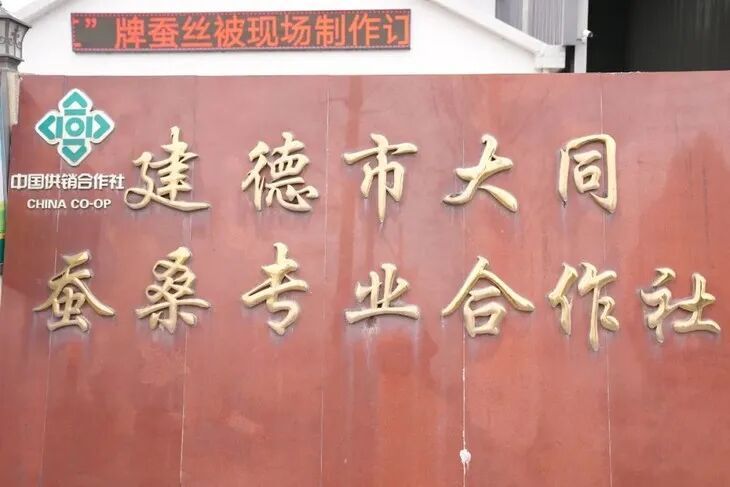 ”牌蚕丝被现场制作订
中国供销合作社
CHINA CO-OP
建德市大同
蚕桑专业合作社